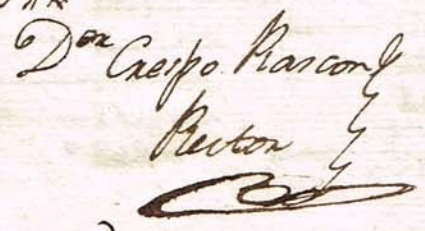 Dor Crespo Rascon
Rector